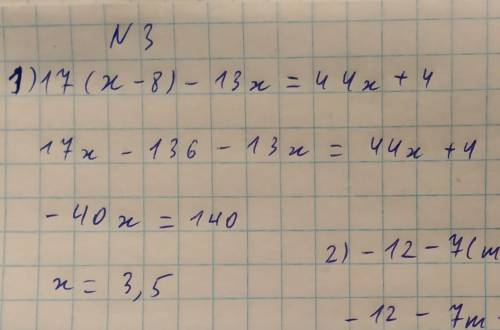 N 3
1) 17 (x - 8) - 13x = 44x + 4
17x - 136 - 13x = 44x + 4
- 40x = 140
x = 3,5
2) - 12 - 7(m
- 12 - 7m